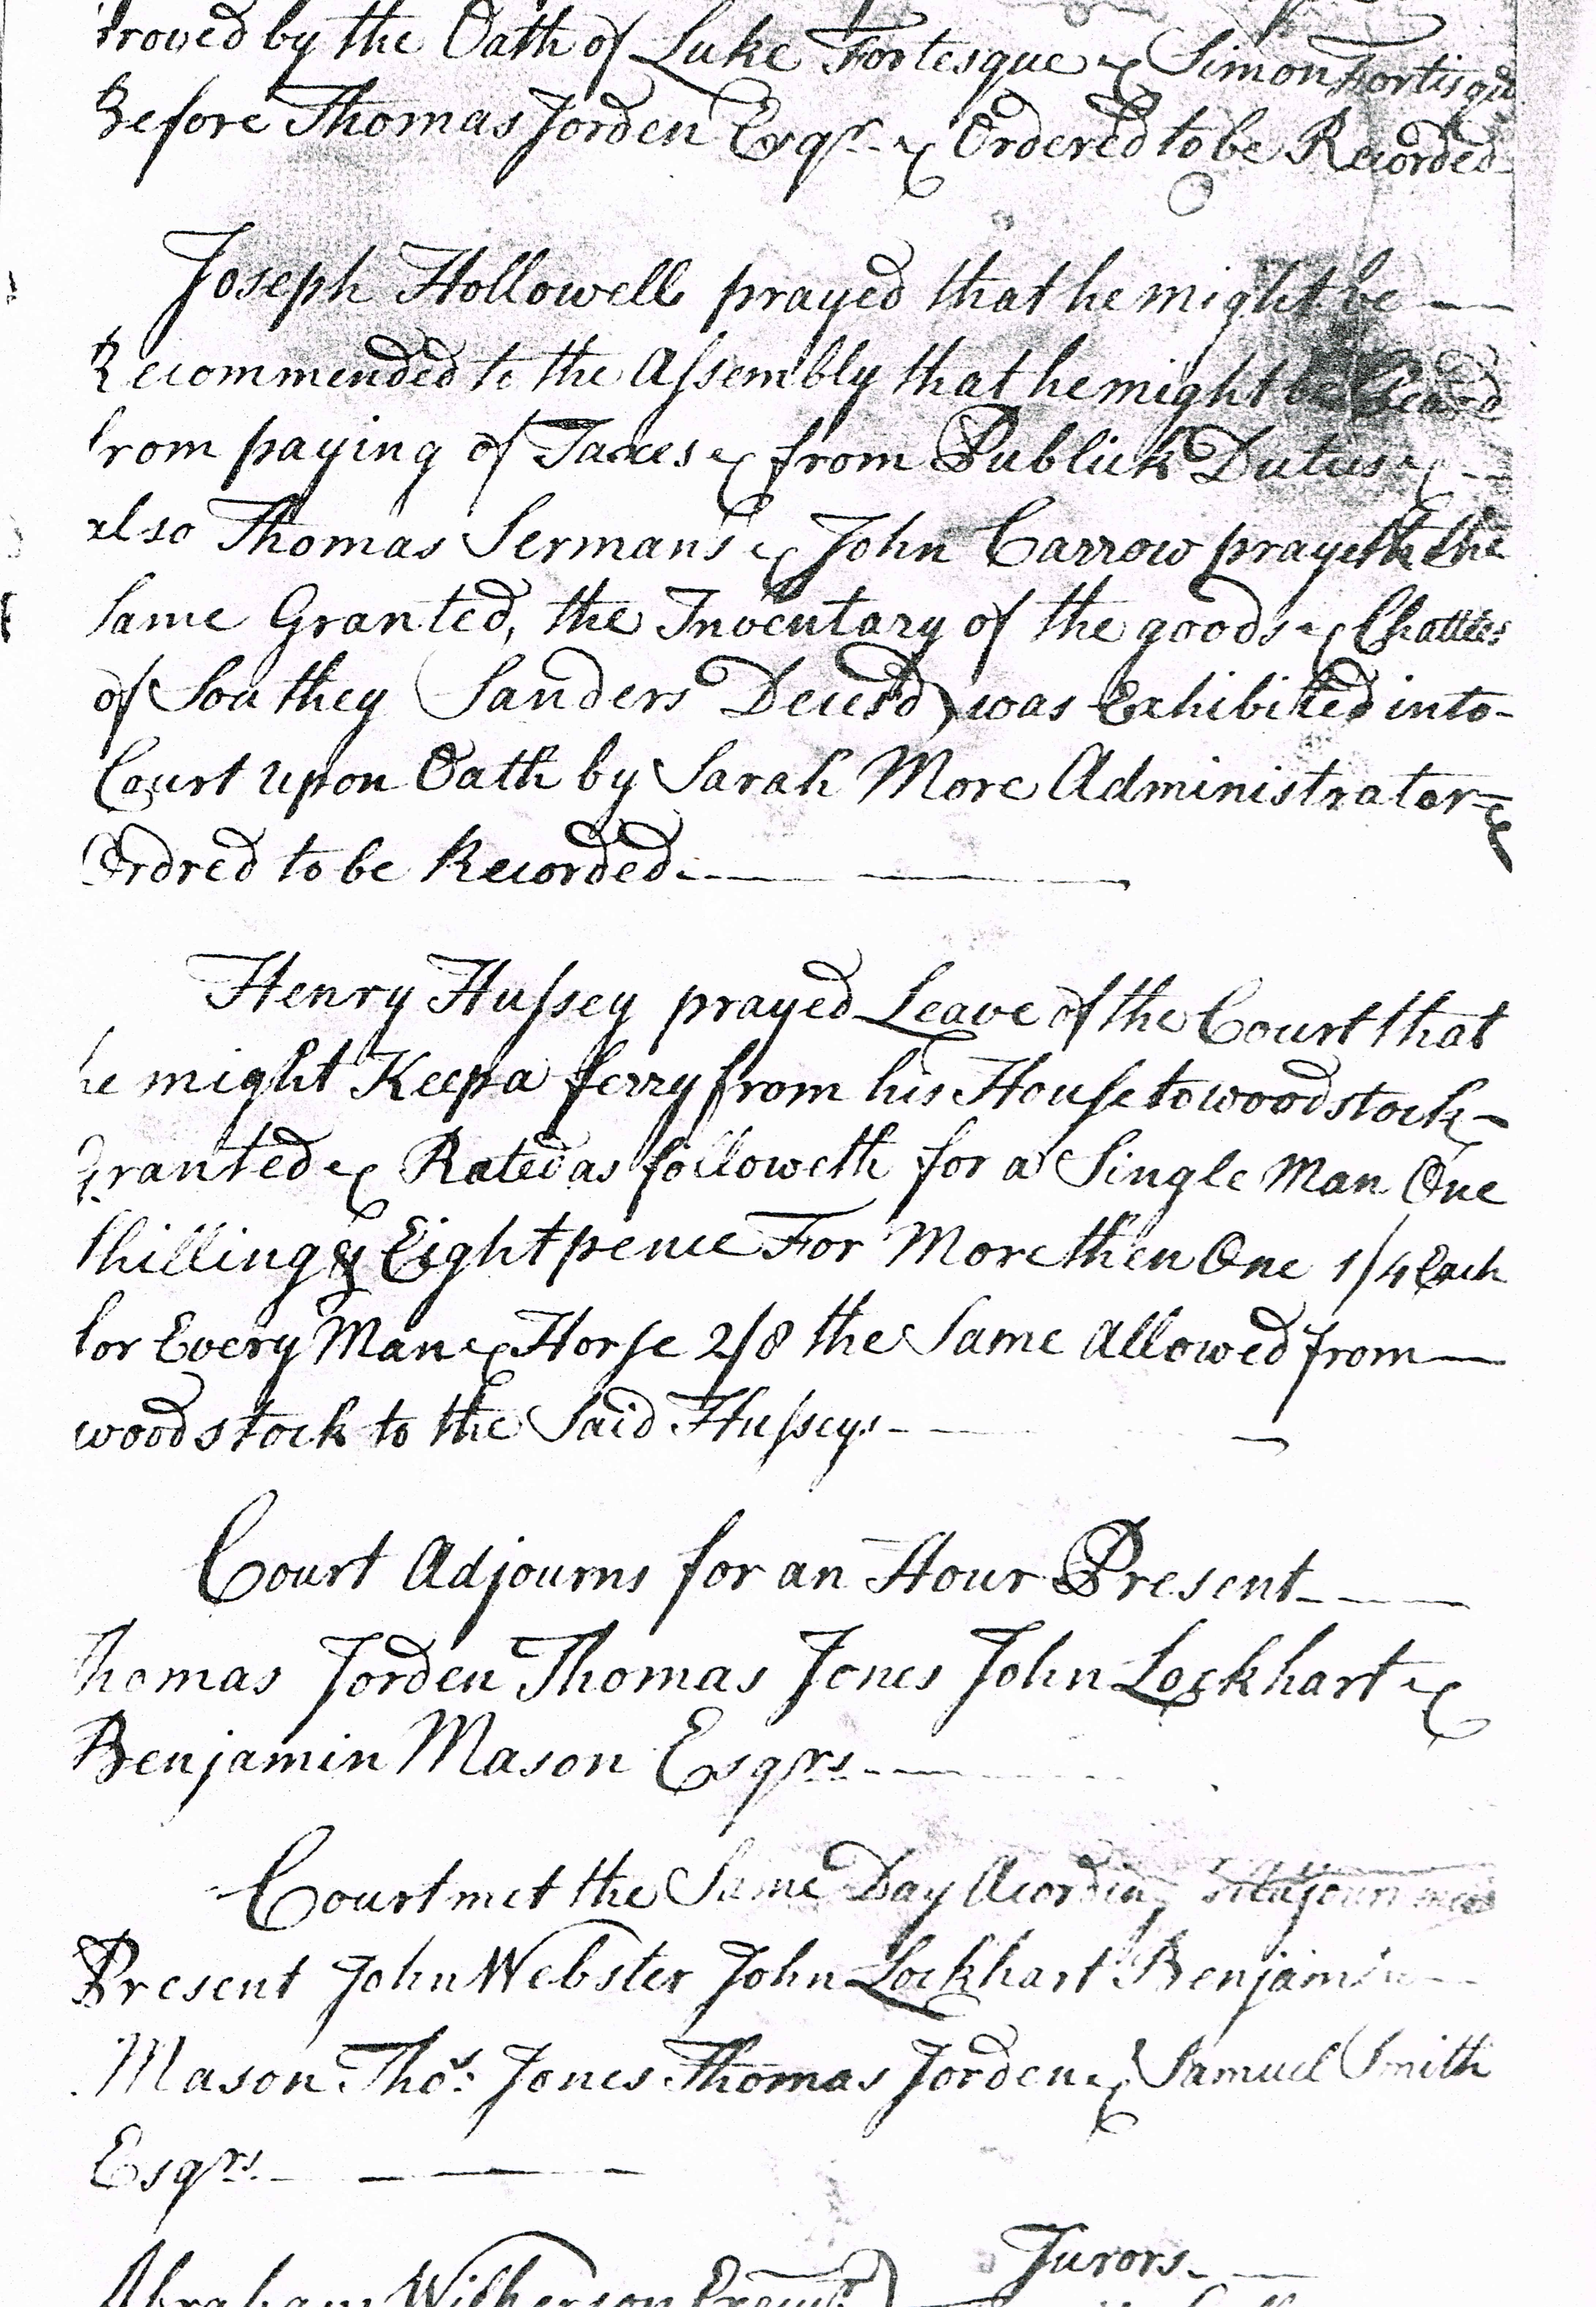 Proved by the Oath of Luke Fortesque & Simon Fortisque
Before Thomas Jorden Esqr. & Ordered to be Recorded
Joseph Hollowell prayed that he might be
Recommended to the Assembly that he might be
from paying of Taxes & from Publick Duties &
also Thomas Sermans & John Carrow prayeth the
Same Granted, the Inventary of the goods & Chatties
of Southey Sanders Decesd was Exhibited into
Court upon Oath by Sarah More Administrator &
Ordred to be Recorded
Henry Hussey prayed Leave of the Court that
he might Keep a ferry from his House to woodstock
Granted & Rated as followeth for a Single Man One
Shilling & Eight pence For More then One 1/4 Each
for Every Man & Horse 2/8 the Same Allowed from
woodstock to the Said Husseys
Court Adjourns for an Hour Present
Thomas Jorden Thomas Jones John Lockhart &
Benjamin Mason Esqrs.
Court met the Same Day Acording to Adjournment
Present John Webster John Lockhart Benjamin
Mason Thos. Jones Thomas Jorden & Samuel Smith
Esqrs.
Jurors
Abraham Wilkerson